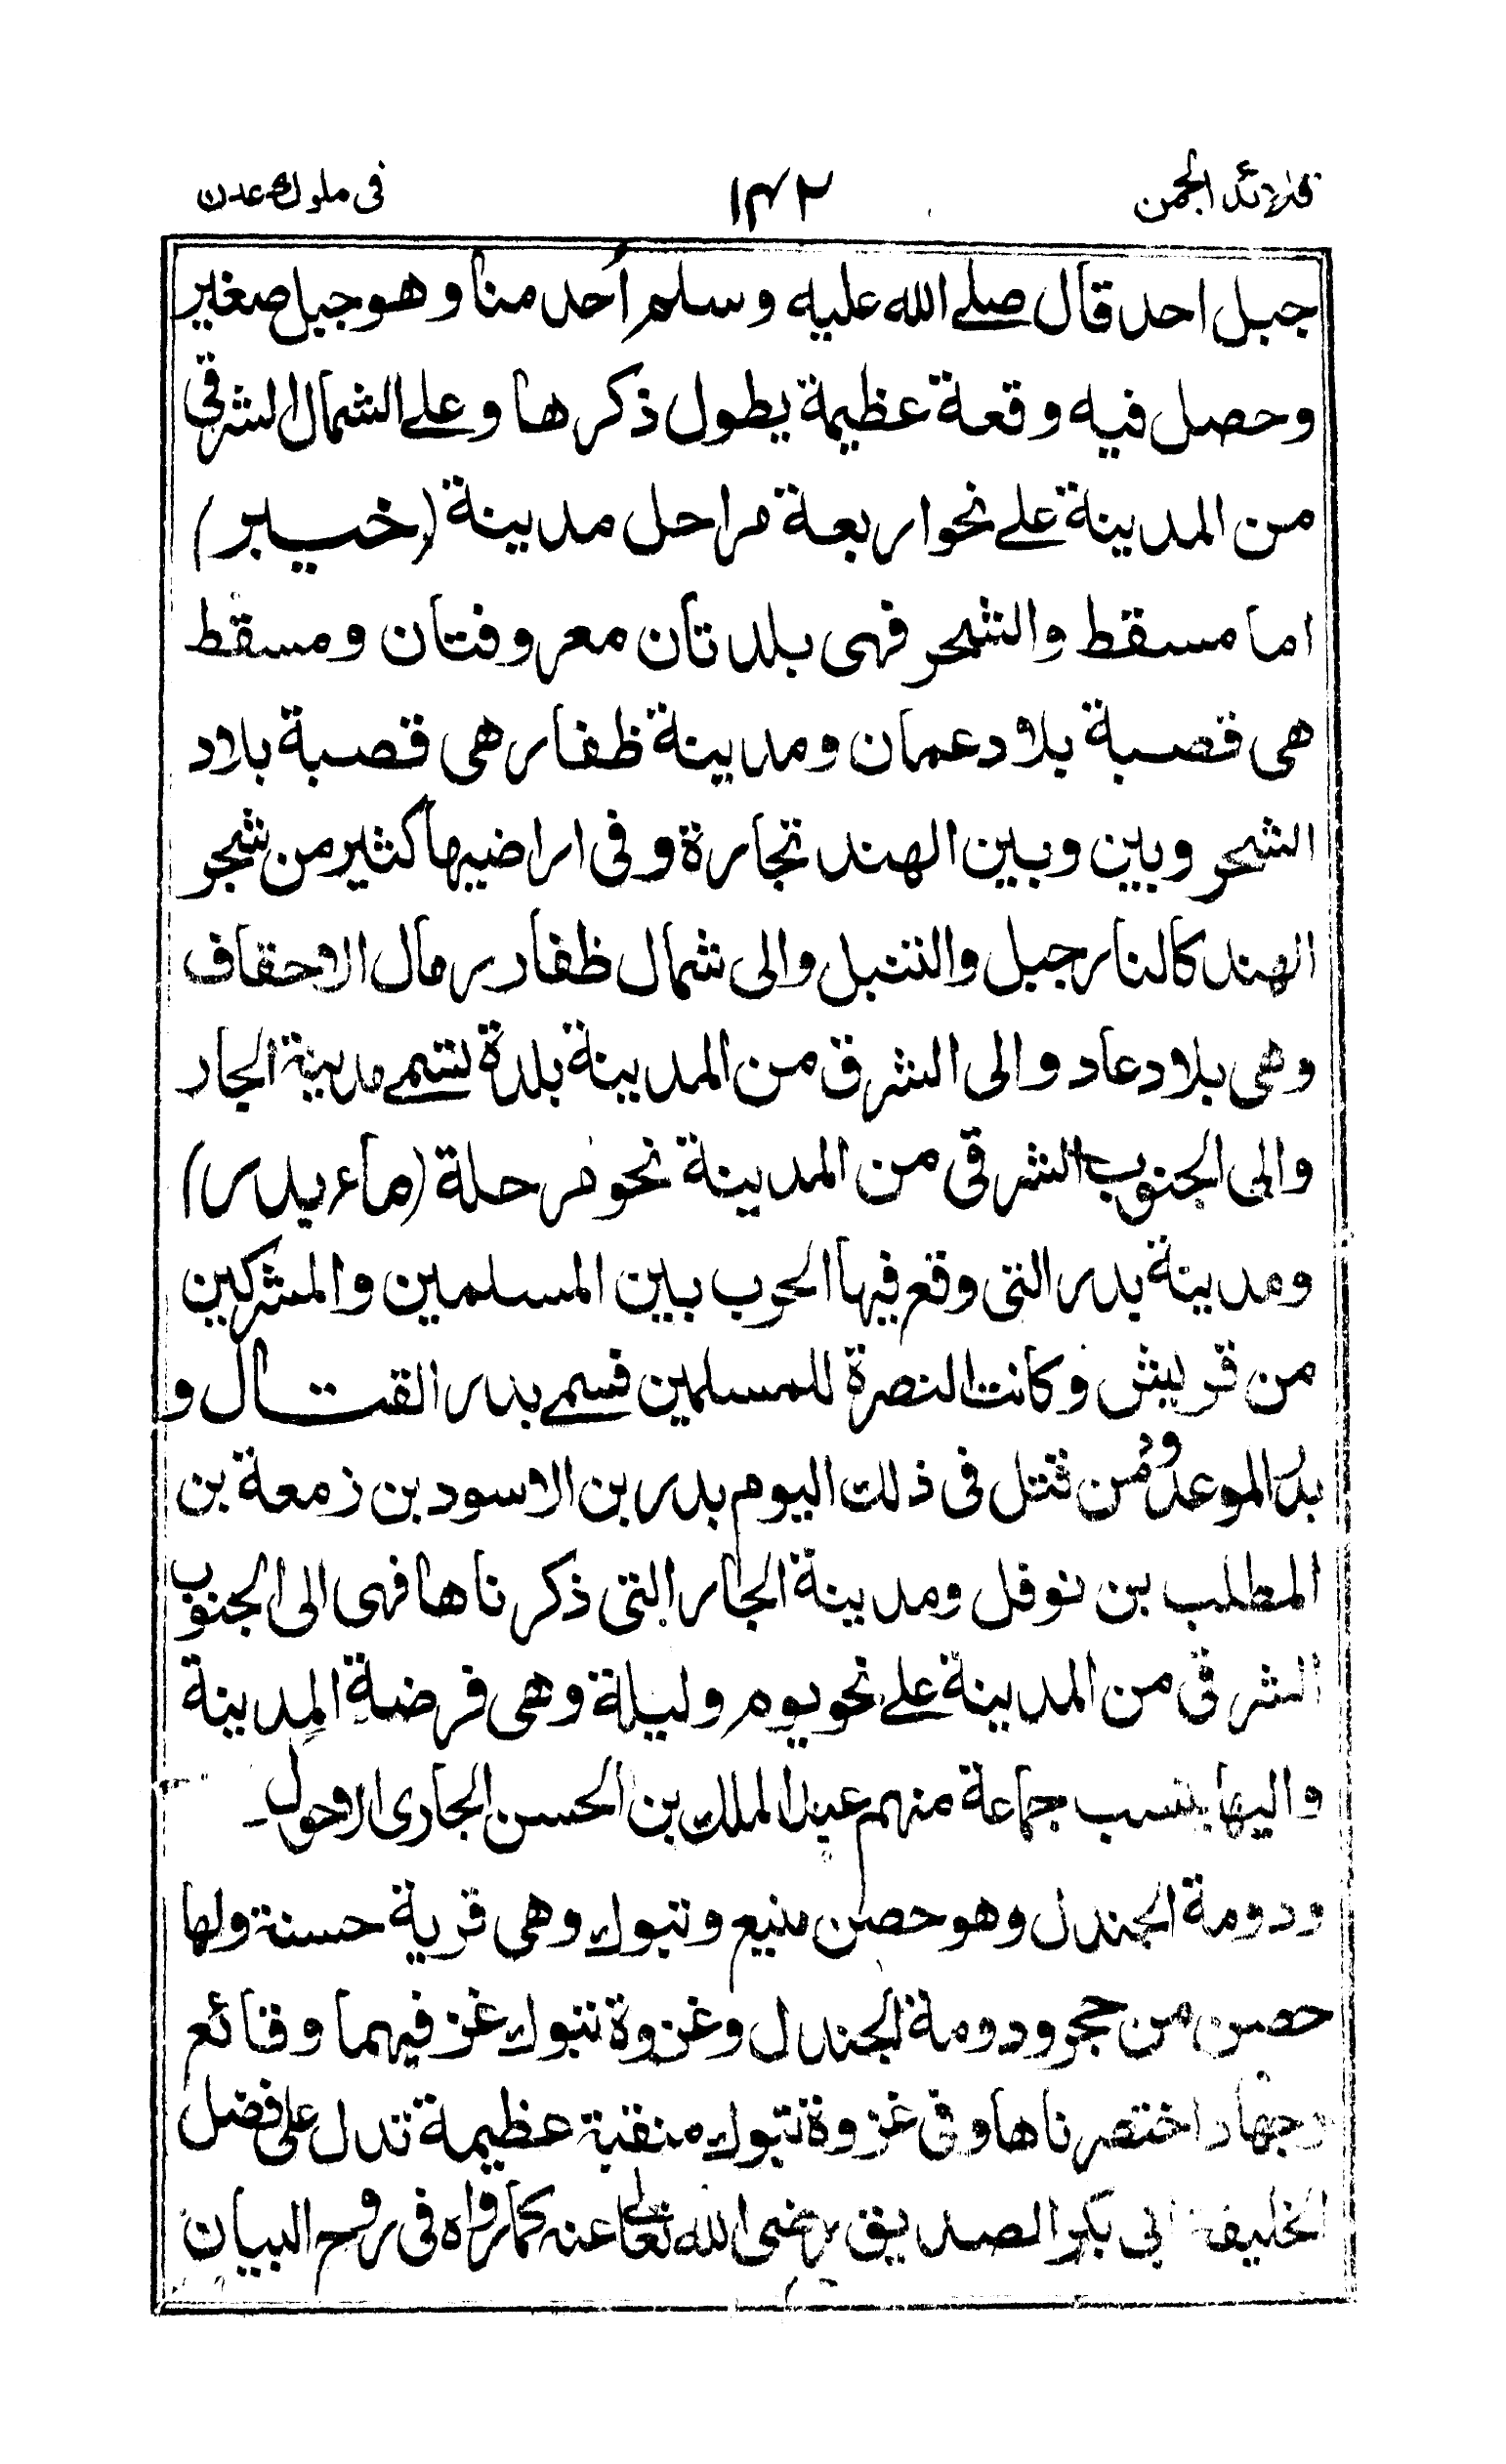 قلائد الجمن ١٤٢ فى ملوك عدن
جبل احد قال صلے الله عليه وسلم اُحد منا وهو جبل صغير
وحصل فيه وقعة عظيمة يطول ذكرها وعلے الشمال الشرقى
من المدينة علے نحوار بعة مراحل مدينة (خيبر)
اما مسقط والشحر فهى بلدتان معروفتان ومسقط
هى قصبة بلاد عمان ومدينة ظفار هى قصبة بلاد
الشحر وبين وبين الهند تجارة وفى اراضيها كثير من شجر
الهند كالنارجيل والتنبل والى شمال ظفار رمال الاحقاف
وهى بلاد عاد والى الشرق من المدينة بلدة تسمے مدينة الجار
والى الجنوب الشرقى من المدينة نحو مرحلة (ماء بدر)
ومدينة بدر التى وقع فيها الحرب بين المسلمين والمشركين
من قريش وكانت النصرة للمسلمين فسمے بدر القتال و
بدر الموعد وممن قتل فى ذلك اليوم بدر بن الاسود بن زمعة بن
المطلب بن نوفل ومدينة الجار التى ذكرناها فهى الى الجنوب
الشرقى من المدينة علے نحو يوم وليلة وهى فرضة المدينة
واليها ينسب جماعة منهم عبد الملك بن الحسن الجارى الاحول
ودومة الجندل وهو حصن منيع وتبوك وهى قرية حسنة ولها
حصن من حجر ودومة الجندل وغزوة تبوك غز فيهما وقائع
وجهاد اختصرناها وفى غزوة تبوك منقبة عظيمة تدل على فضل
الخليفة ابى بكر الصديق رضى الله تعالى عنه كما رواه فى روح البيان